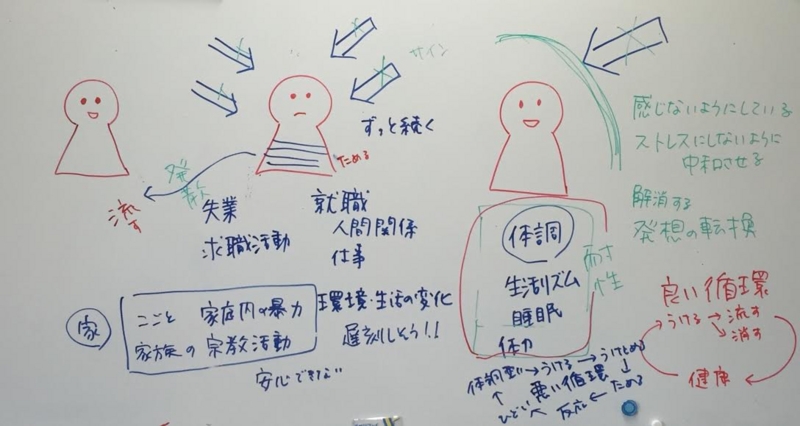 サイン
ずっと続く
ためる
発散
流す
失業
求職活動
就職
人間関係
仕事
家
こごと 家庭内の暴力
家族の宗教活動
安心できない
環境・生活の変化
遅刻しそう!!
感じないようにしている
ストレスにしないように
中和させる
解消する
発想の転換
体調
生活リズム
睡眠
体力
耐性
体調悪い→うける→うけとめる
↑ 悪い循環 ↓
ひどい ← 反応 ← ためる
良い循環
→うける→流す
→消す
健康